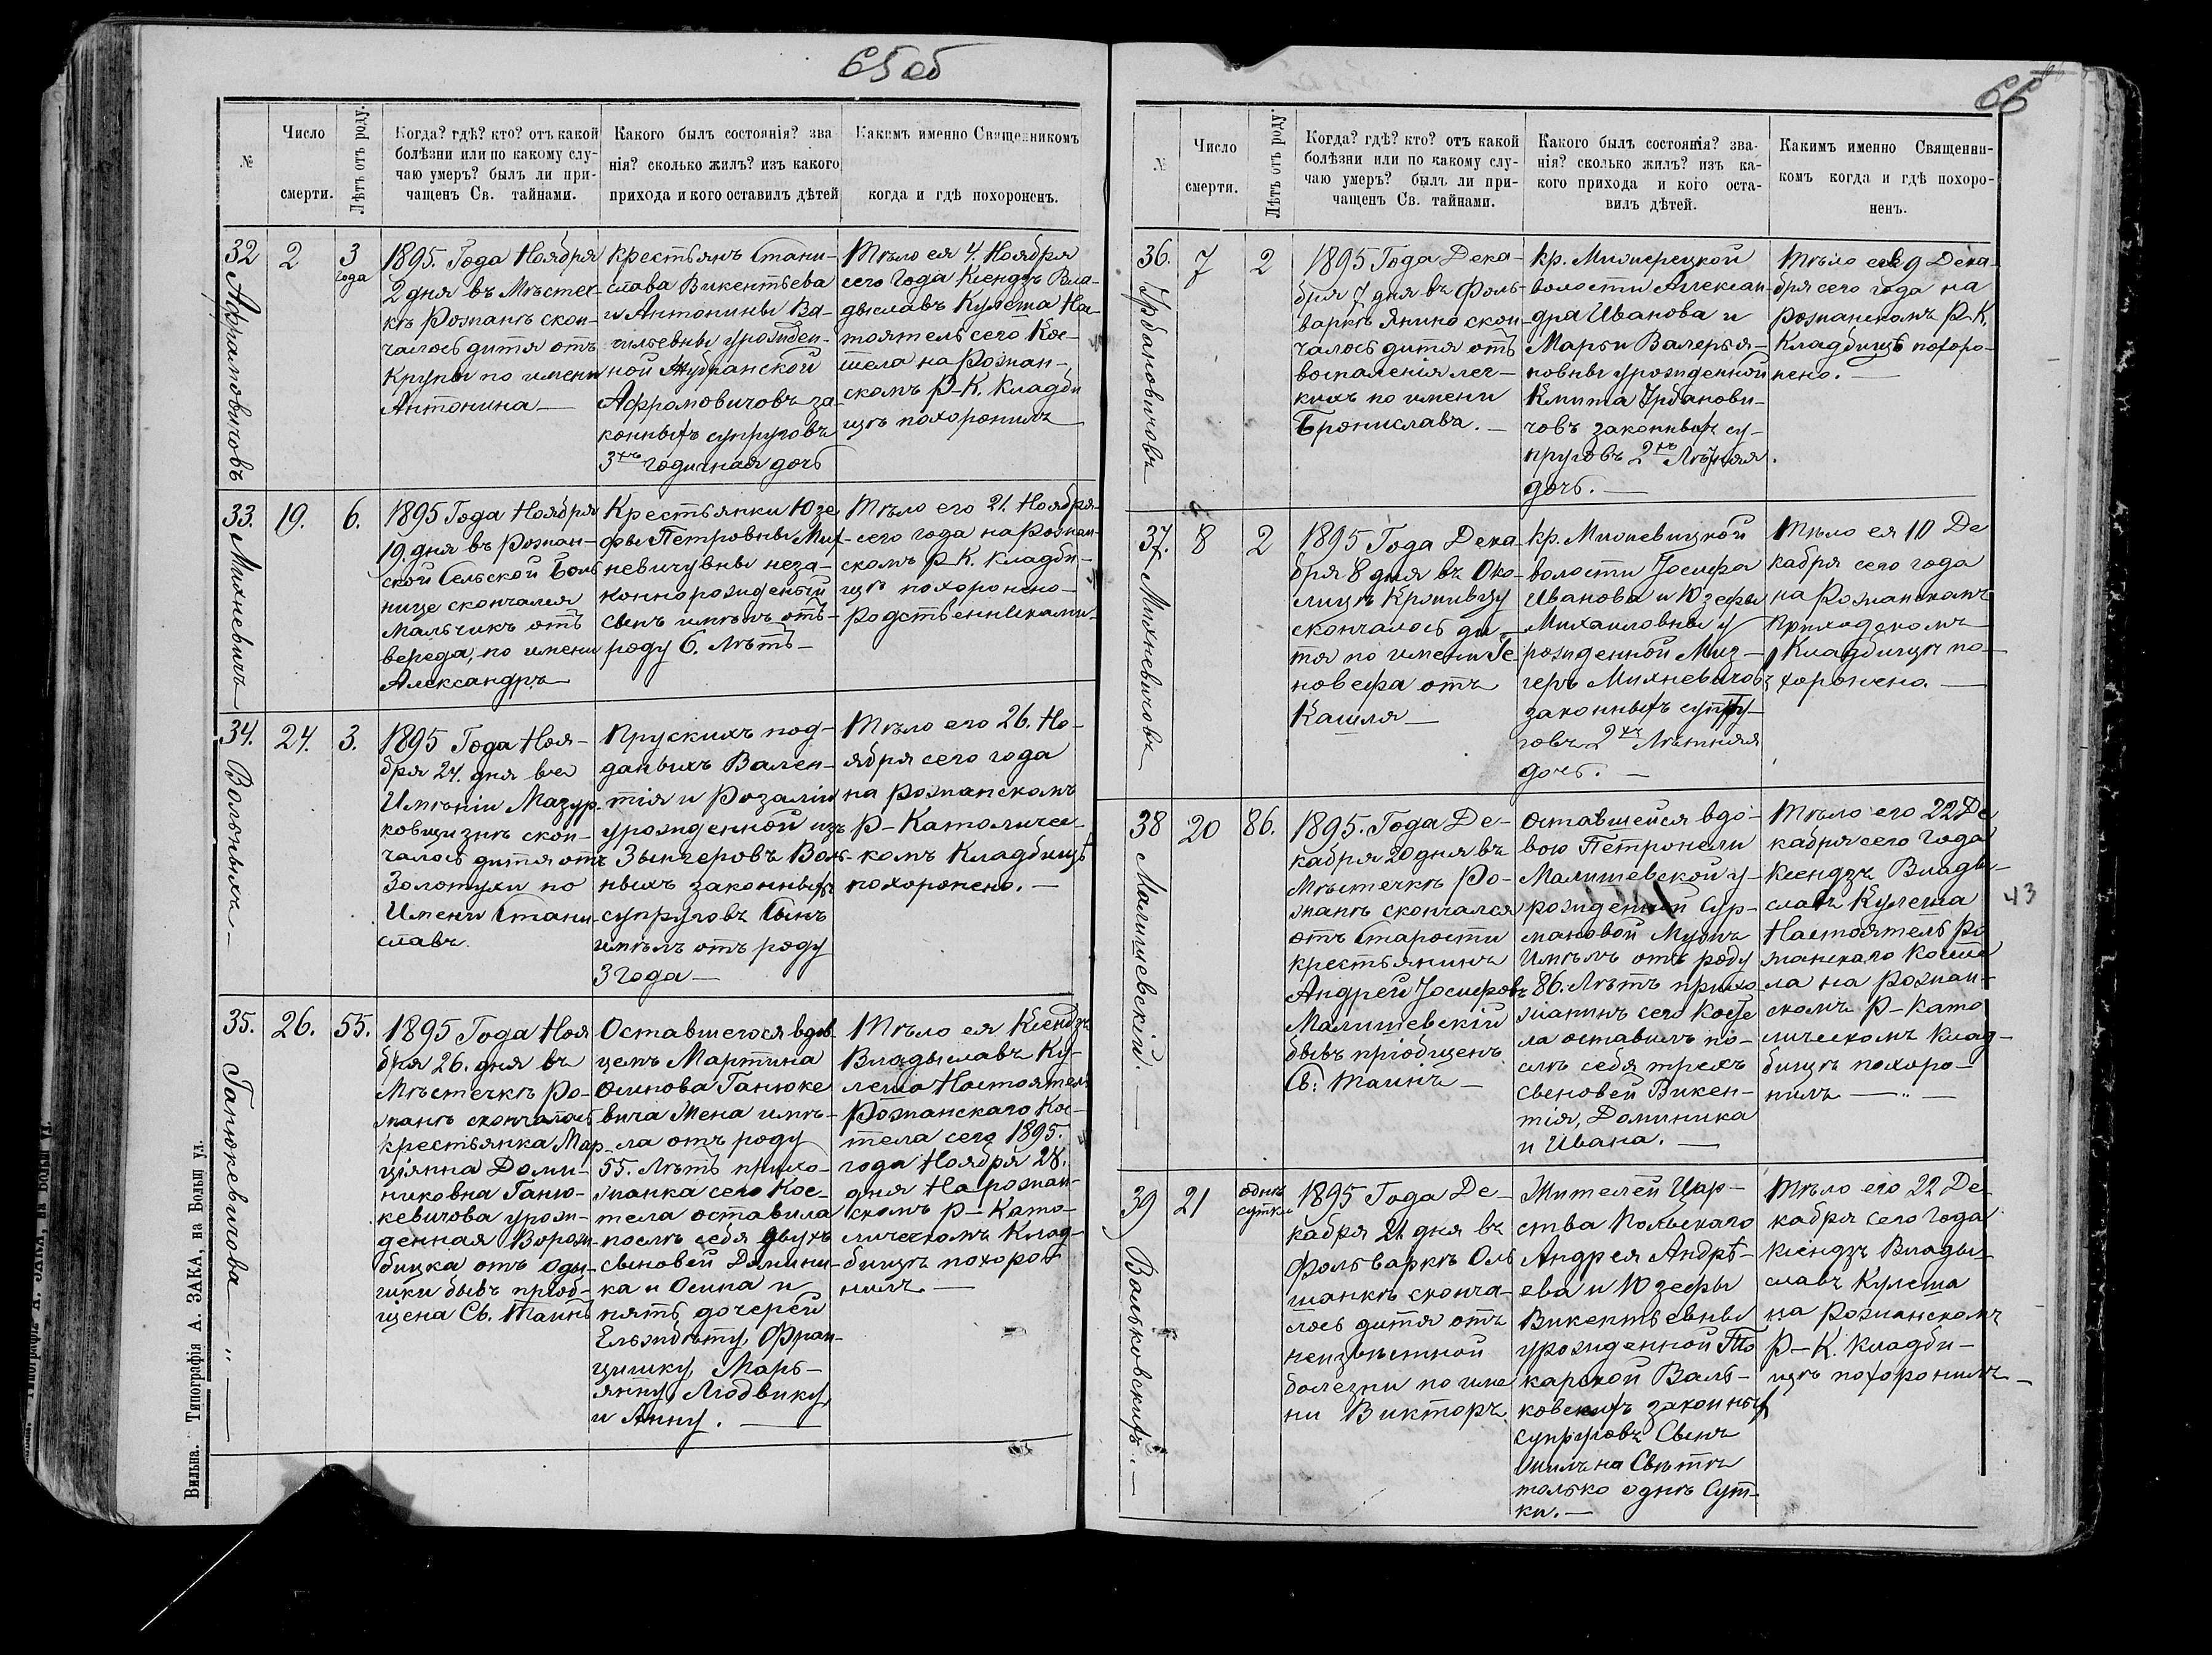 65 об
№
Число
смерти.
Лѣтъ отъ роду.
Когда? гдѣ? кто? отъ какой
болѣзни или по какому слу-
чаю умеръ? былъ ли при-
чащенъ Св. тайнами.
Какого былъ состоянія? зва
нія? сколько жилъ? изъ какого
прихода и кого оставилъ дѣтей
Какимъ именно Священникомъ
когда и гдѣ похороненъ.
32
Афрамовичовъ
2
3
года
1895. Года Ноября
2 дня въ Мѣстеч-
кѣ Рожанѣ скон-
чалось дитя отъ
Крупы по имени
Антонина —
крестьянъ Стани-
слава Викентьева
и Антонины Ва-
сильевны урожден-
ной
Афромовичовъ за-
конныхъ супруговъ
3хъ годичная дочь
Тѣло ея 4. Ноября
сего Года Ксендзъ Вла-
дыславъ Кулеша На-
тоятель сего Кос-
тела на Рожан-
скомъ Р-К. Кладби
щѣ похоронилъ
33.
Михневичъ
19.
6.
1895 Года Ноября
19. дня въ Рожан-
ской Сельской Боль
нице скончался
Мальчикъ отъ
вереда, по имени
Александръ
Крестьянки Юзе
фы Петровны Мих-
невичувны неза-
коннорожденый
сынъ имѣлъ отъ-
роду 6. Лѣтъ —
Тѣло его 21. Ноября
сего года на Рожан-
скомъ Р-К. Кладби-
щѣ похоронено
Родственниками.
34.
Вольныхъ —
24.
3.
1895 Года Ноя-
бря 24. дня въ
Имѣніи Мазур-
ковщизнѣ скон-
чалось дитя отъ
Золотухи по
Имени Стани-
славъ.
Прускихъ под-
даныхъ Вален-
тія и Розаліи
урожденной изъ
Зынгеровъ Воль-
ныхъ законныхъ
супруговъ Сынъ
имѣлъ отъ роду
3 года —
Тѣло его 26. Но-
ября сего года
на Рожанскомъ
Р-Католичес-
комъ Кладбищѣ
похоронено. —
35.
Ганюкевичова — „ —
26.
55.
1895 Года Ноя
бря 26. дня въ
Мѣстечкѣ Ро-
жанѣ скончалась
крестьянка Мар-
ціянна Доми-
никовна Ганю-
кевичова урож-
денная Ворож-
бицка отъ Оды-
шки бывъ пріоб-
щена Св. Таинъ
Оставшегося вдов
цемъ Мартина
Осипова Ганюке
вича Жена имѣ-
ла отъ роду
55. Лѣтъ прихо-
жанка сего Кос-
тела оставила
послѣ себя двухъ
сыновей Домини-
ка и Осипа и
пять дочерей
Ельжбѣту, Фран-
цишку, Марь-
янну, Людвику,
и Анну. —
Тѣло ея Ксендзъ
Владыславъ Ку-
леша Настоятель
Рожанскаго Кос-
тела сего 1895.
года Ноября 28.
дня На рожан-
скомъ Р-Като-
личесномъ Клад-
бищѣ похоро-
нилъ —
Вильна. Типографія А. ЗАКА, на Больш ул.
66
№
Число
смерти.
Лѣтъ отъ роду.
Когда? гдѣ? кто? отъ какой
болѣзни или по какому слу-
чаю умеръ? былъ ли при-
чащенъ Св. тайнами.
Какого былъ состоянія? зва-
нія? сколько жилъ? изъ ка-
кого прихода и кого оста-
вилъ дѣтей.
Какимъ именно Священни-
комъ когда и гдѣ похоро-
ненъ.
36.
Урбановичовъ
7
2
1895 Года Дека-
бря 7 дня въ фоль-
варкѣ Янино скон-
чалось дитя отъ
воспаленія лег-
кихъ по имени
Брониславъ. —
кр.
волости Алексан-
дра Иванова и
Марьи Валерья-
новны урожденной
Кмита Урбанови-
човъ законныхъ су-
пруговъ 2хъ Лѣтняя
дочь. —
Тѣло 9 Дека-
бря сего года на
рожанскомъ Р-К.
Кладбищѣ похоро-
нено. —
37.
Михневичовъ
8
2
1895 Года Дека-
бря 8 дня въ Око-
лицѣ Кропивцу
скончалось ди-
тя по имени Ге-
новефа отъ
Кашля —
кр.
волости Іосифа
Иванова и Юзефы
Михаиловны у
рожденной
Михневичовъ
законныхъ супру-
говъ 2хъ Лѣтняя
дочь. —
Тѣло ея 10 Де
кабря сего года
на Рожанскомъ
Приходскомъ
Кладбищѣ по-
хоронено. —
38
Малишевскій. —
20
86.
1895. Года Де-
кабря 20 дня въ
Мѣстечкѣ Ро-
жанѣ скончался
отъ Старости
крестьянинъ
Андрей Іосифовъ
Малишевскій
бывъ пріобщенъ
Св: Таинъ —
Оставшейся вдо-
вою Петронели
Малишевской у-
рожденной Сур-
маковой Мужъ
Имѣлъ отъ роду
86. Лѣтъ прихо
жанинъ сего Косте
ла оставилъ по-
слѣ себя трехъ
сыновей Викен-
тія, Доминика
и Ивана. —
Тѣло его 22 Де
кабря сего Года
Ксендзъ Влады-
славъ Кулеша
Настоятель Ро
жанскаго Косте
ла на Рожан-
скомъ Р-Като
лическомъ Клад-
бищѣ похоро-
нилъ — „ —
43
39
Вальковскихъ. —
21
однѣ
сутки
1895 Года Де-
кабря 21 дня въ
Фольваркѣ Оль
шанкѣ сконча-
лось дитя отъ
неизвѣстной
болезни по име
ни Викторъ
Жителей Цар-
ства Польскаго
Андрея Андрѣ-
ева и Юзефы
Викентьевны
урожденной То
карской Валь-
ковскихъ законныхъ
супруговъ Сынъ
Жилъ на Свѣтѣ
только однѣ Сут-
ки. —
Тѣло его 22 Де
кабря сего Года
Ксендзъ Влады-
славъ Кулеша
на рожанскомъ
Р-К. Кладби-
щѣ похоронилъ —